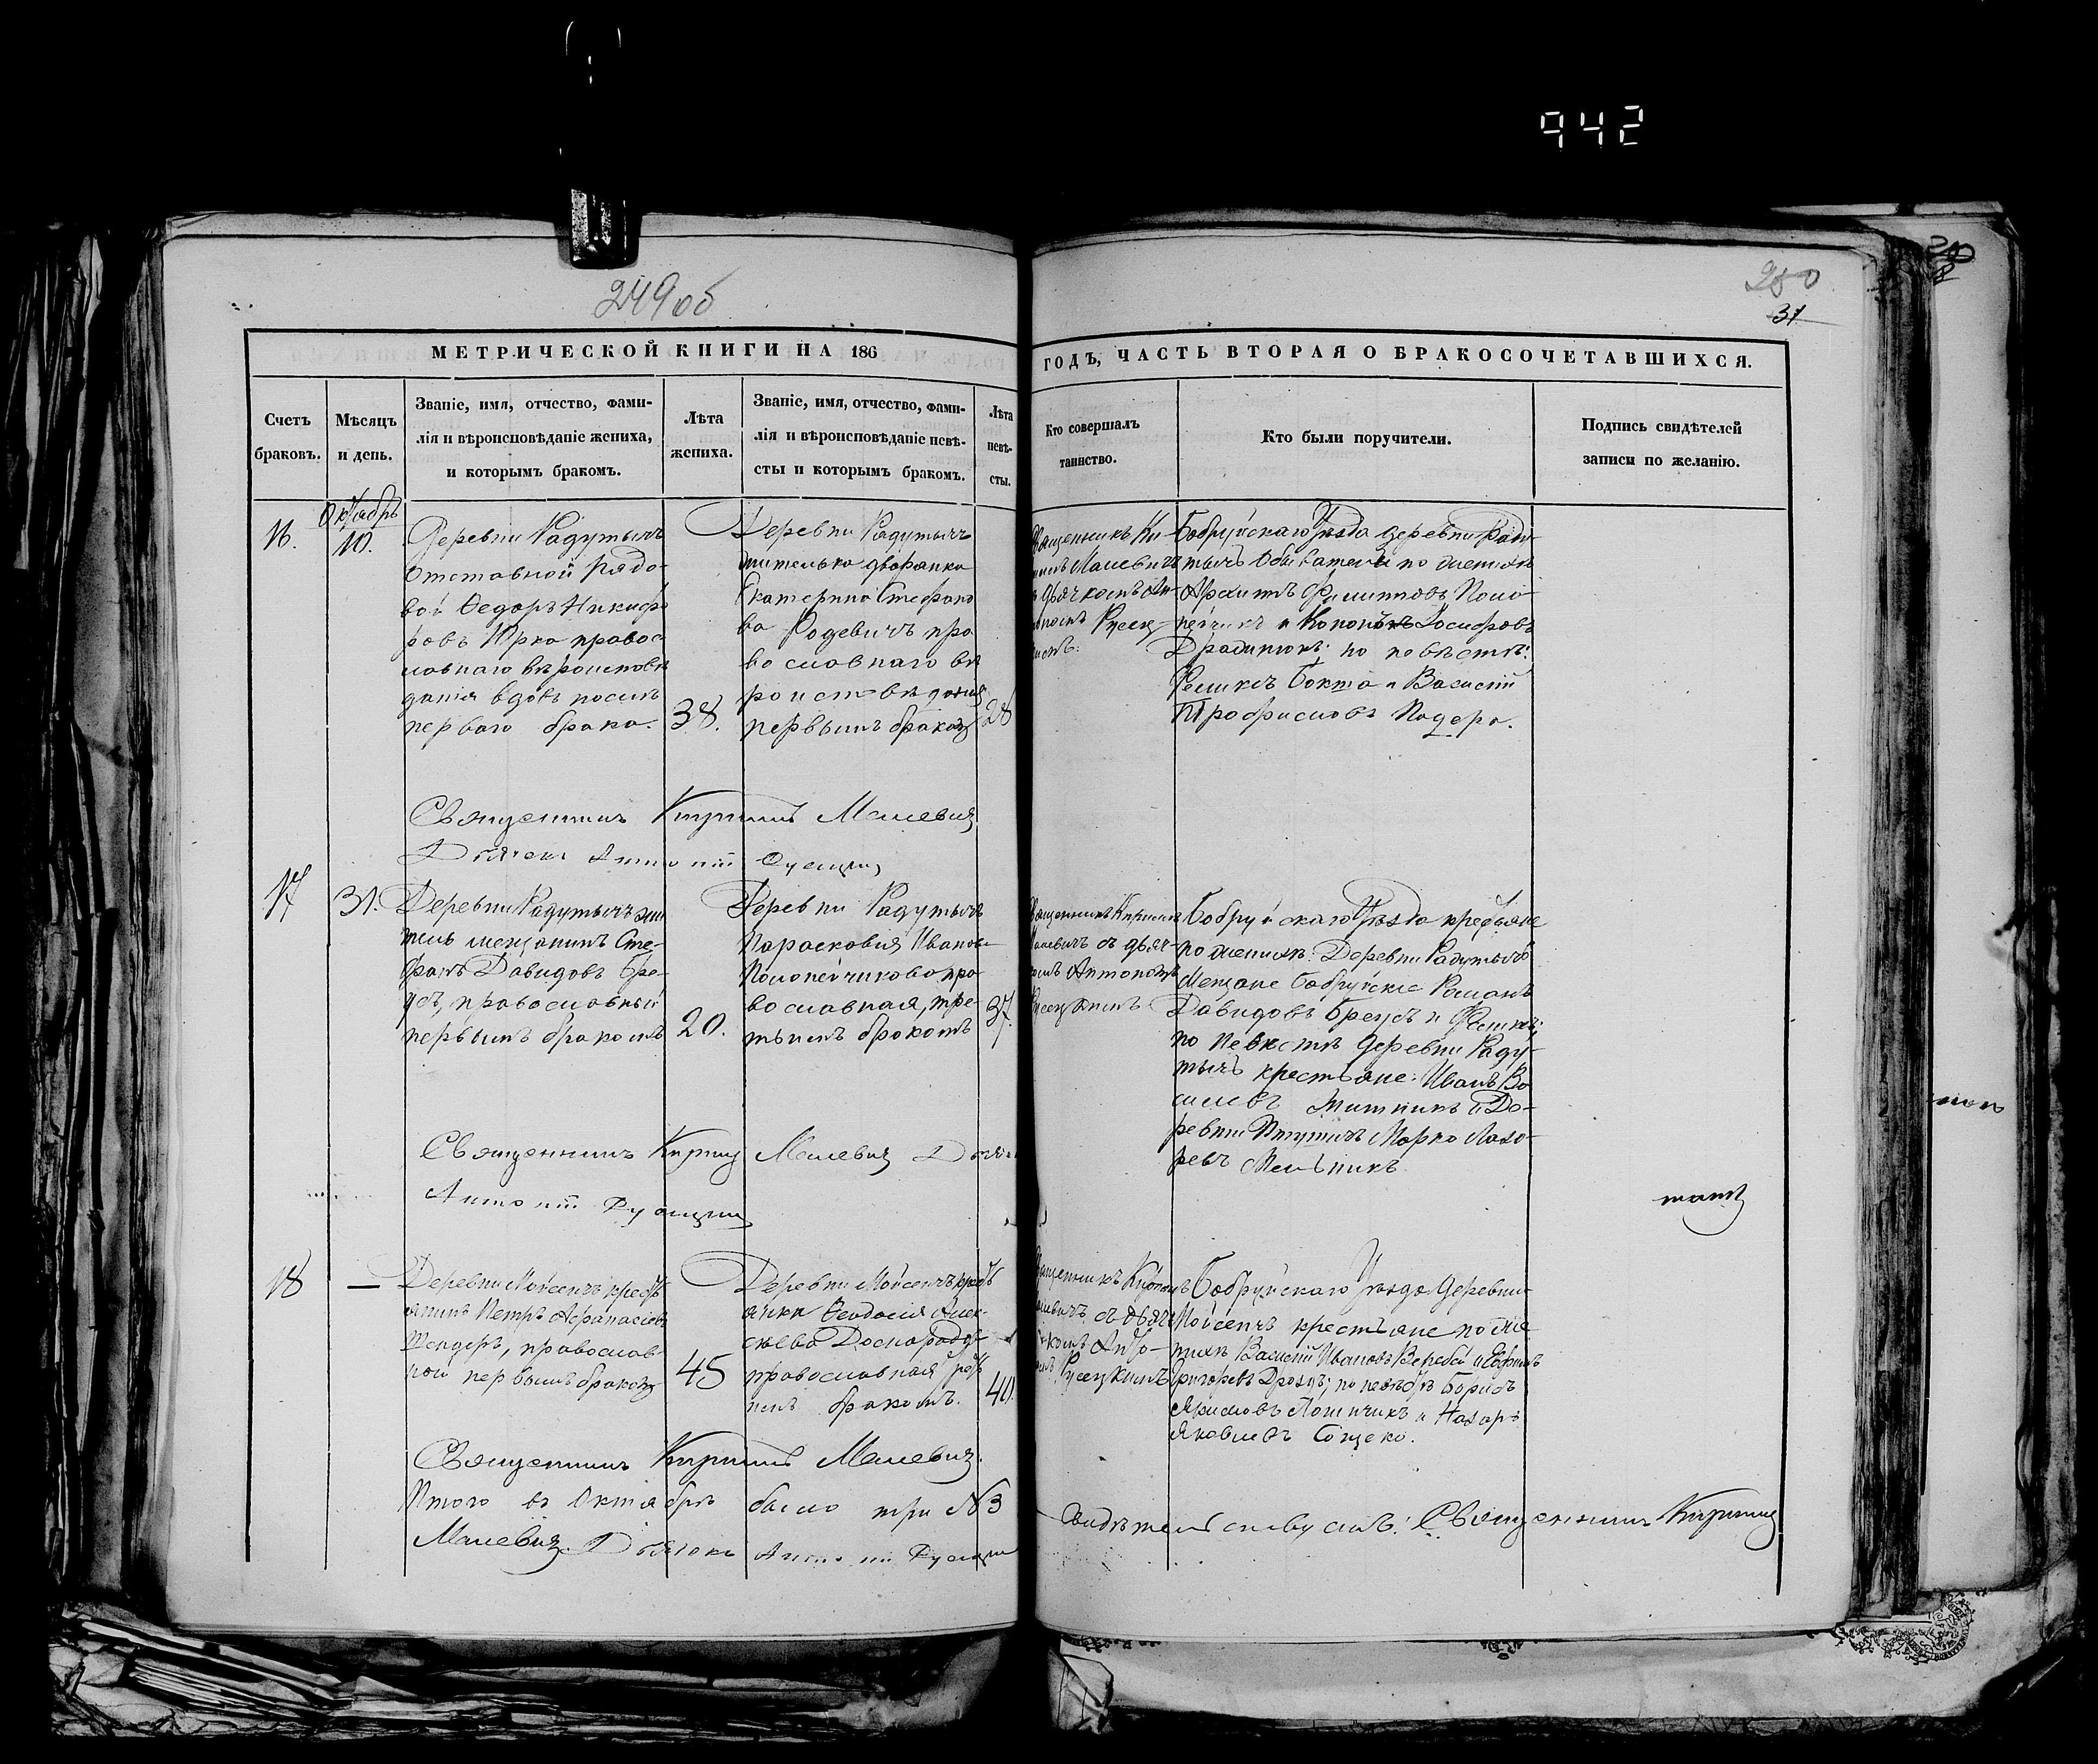 942
249об
250
31
МЕТРИЧЕСКОЙ КНИГИ НА 186
ГОДЪ, ЧАСТЬ ВТОРАЯ О БРАКОСОЧЕТАВШИХСЯ.
Счетъ
браковъ.
Мѣсяцъ
и день.
Званіе, имя, отчество, фами-
лія и вѣроисповѣданіе жениха,
и которымъ бракомъ.
Лѣта
жениха.
Званіе, имя, отчество, фами-
лія и вѣроисповѣданіе невѣ-
сты и которымъ бракомъ.
Лѣта
невѣ-
сты.
Кто совершалъ
таинство.
Кто были поручители.
Подпись свидѣтелей
записи по желанію.
16.
Октябрь
10.
Деревни Радутычъ
Отставной рядо-
вой Ѳедоръ Никифо
ровъ Юрко правос
лавнаго вѣроисповѣ
данія вдовъ послѣ
перваго брака.
38.
Деревни Радутычъ
жителька дворянка
Екатерина Стефано
ва Родевичъ пра
вославнаго вѣ
роисповѣданія
первымъ бракомъ
28
Священникъ Ки-
Малевичъ
дьячкомъ Ан-
Русец-
Бобруйскаго Уѣзда деревни Раду-
тычъ Обыватели по женихѣ
Архипъ Филиповъ Поло-
пейчикъ и Іосифовъ
по невѣстѣ:
Василій
Трофимовъ Падера.
Священникъ Кирилъ Малевич
Дьячекъ Антоній Русецкій
17
31.
Деревни Радутычъ жи
тель мещанинъ Сте-
фанъ Давидовъ Бра-
усъ, православный
первымъ бракомъ
20.
Деревни Радутычъ
Парасковія Иванова
Полопейчикова пра
вославная, тре-
тьимъ бракомъ
37.
Священникъ Кирилъ
Малевичъ съ дьяч-
комъ Антоніемъ
Русецкимъ
Бобруйскаго Уѣзда крестьяне
по женихѣ: Деревни Радутычъ
Мещане Бобруйскіе Романъ
Давидовъ Бреусъ и
по невѣстѣ деревни Раду-
тычъ крестьяне: Иванъ Ва
силевъ и Де-
ревни Марко Лаза-
ревъ Мельникъ.
Священникъ Кирилъ Малевич Дьячекъ
Антоній Русецкій
18
—
Деревни Мойсеичъ крест
янинъ Петръ Афанасіевъ
православ-
ной первымъ бракомъ
45
Деревни Мойсеичъ крест
янка Ѳеодосія Алек-
сѣева
православная
бракомъ.
40.
Священникъ Кирилъ
Малевичъ съ дьяч
комъ Анто-
Русецкимъ
Бобруйскаго Уѣзда Деревни
Мойсеичъ крестьяне по же
нихѣ Василій Ивановъ Веребей и Ефимъ
Григоревъ Дроздъ; по невѣстѣ Борисъ
Якимовъ и Назаръ
Яковлевъ
Священникъ Кирилъ Малевич.
Итого въ Октябрѣ было три №3
Свидѣтельствуемъ: Священникъ Кирилъ
Малевич. Дьячекъ Антоній Русецкій